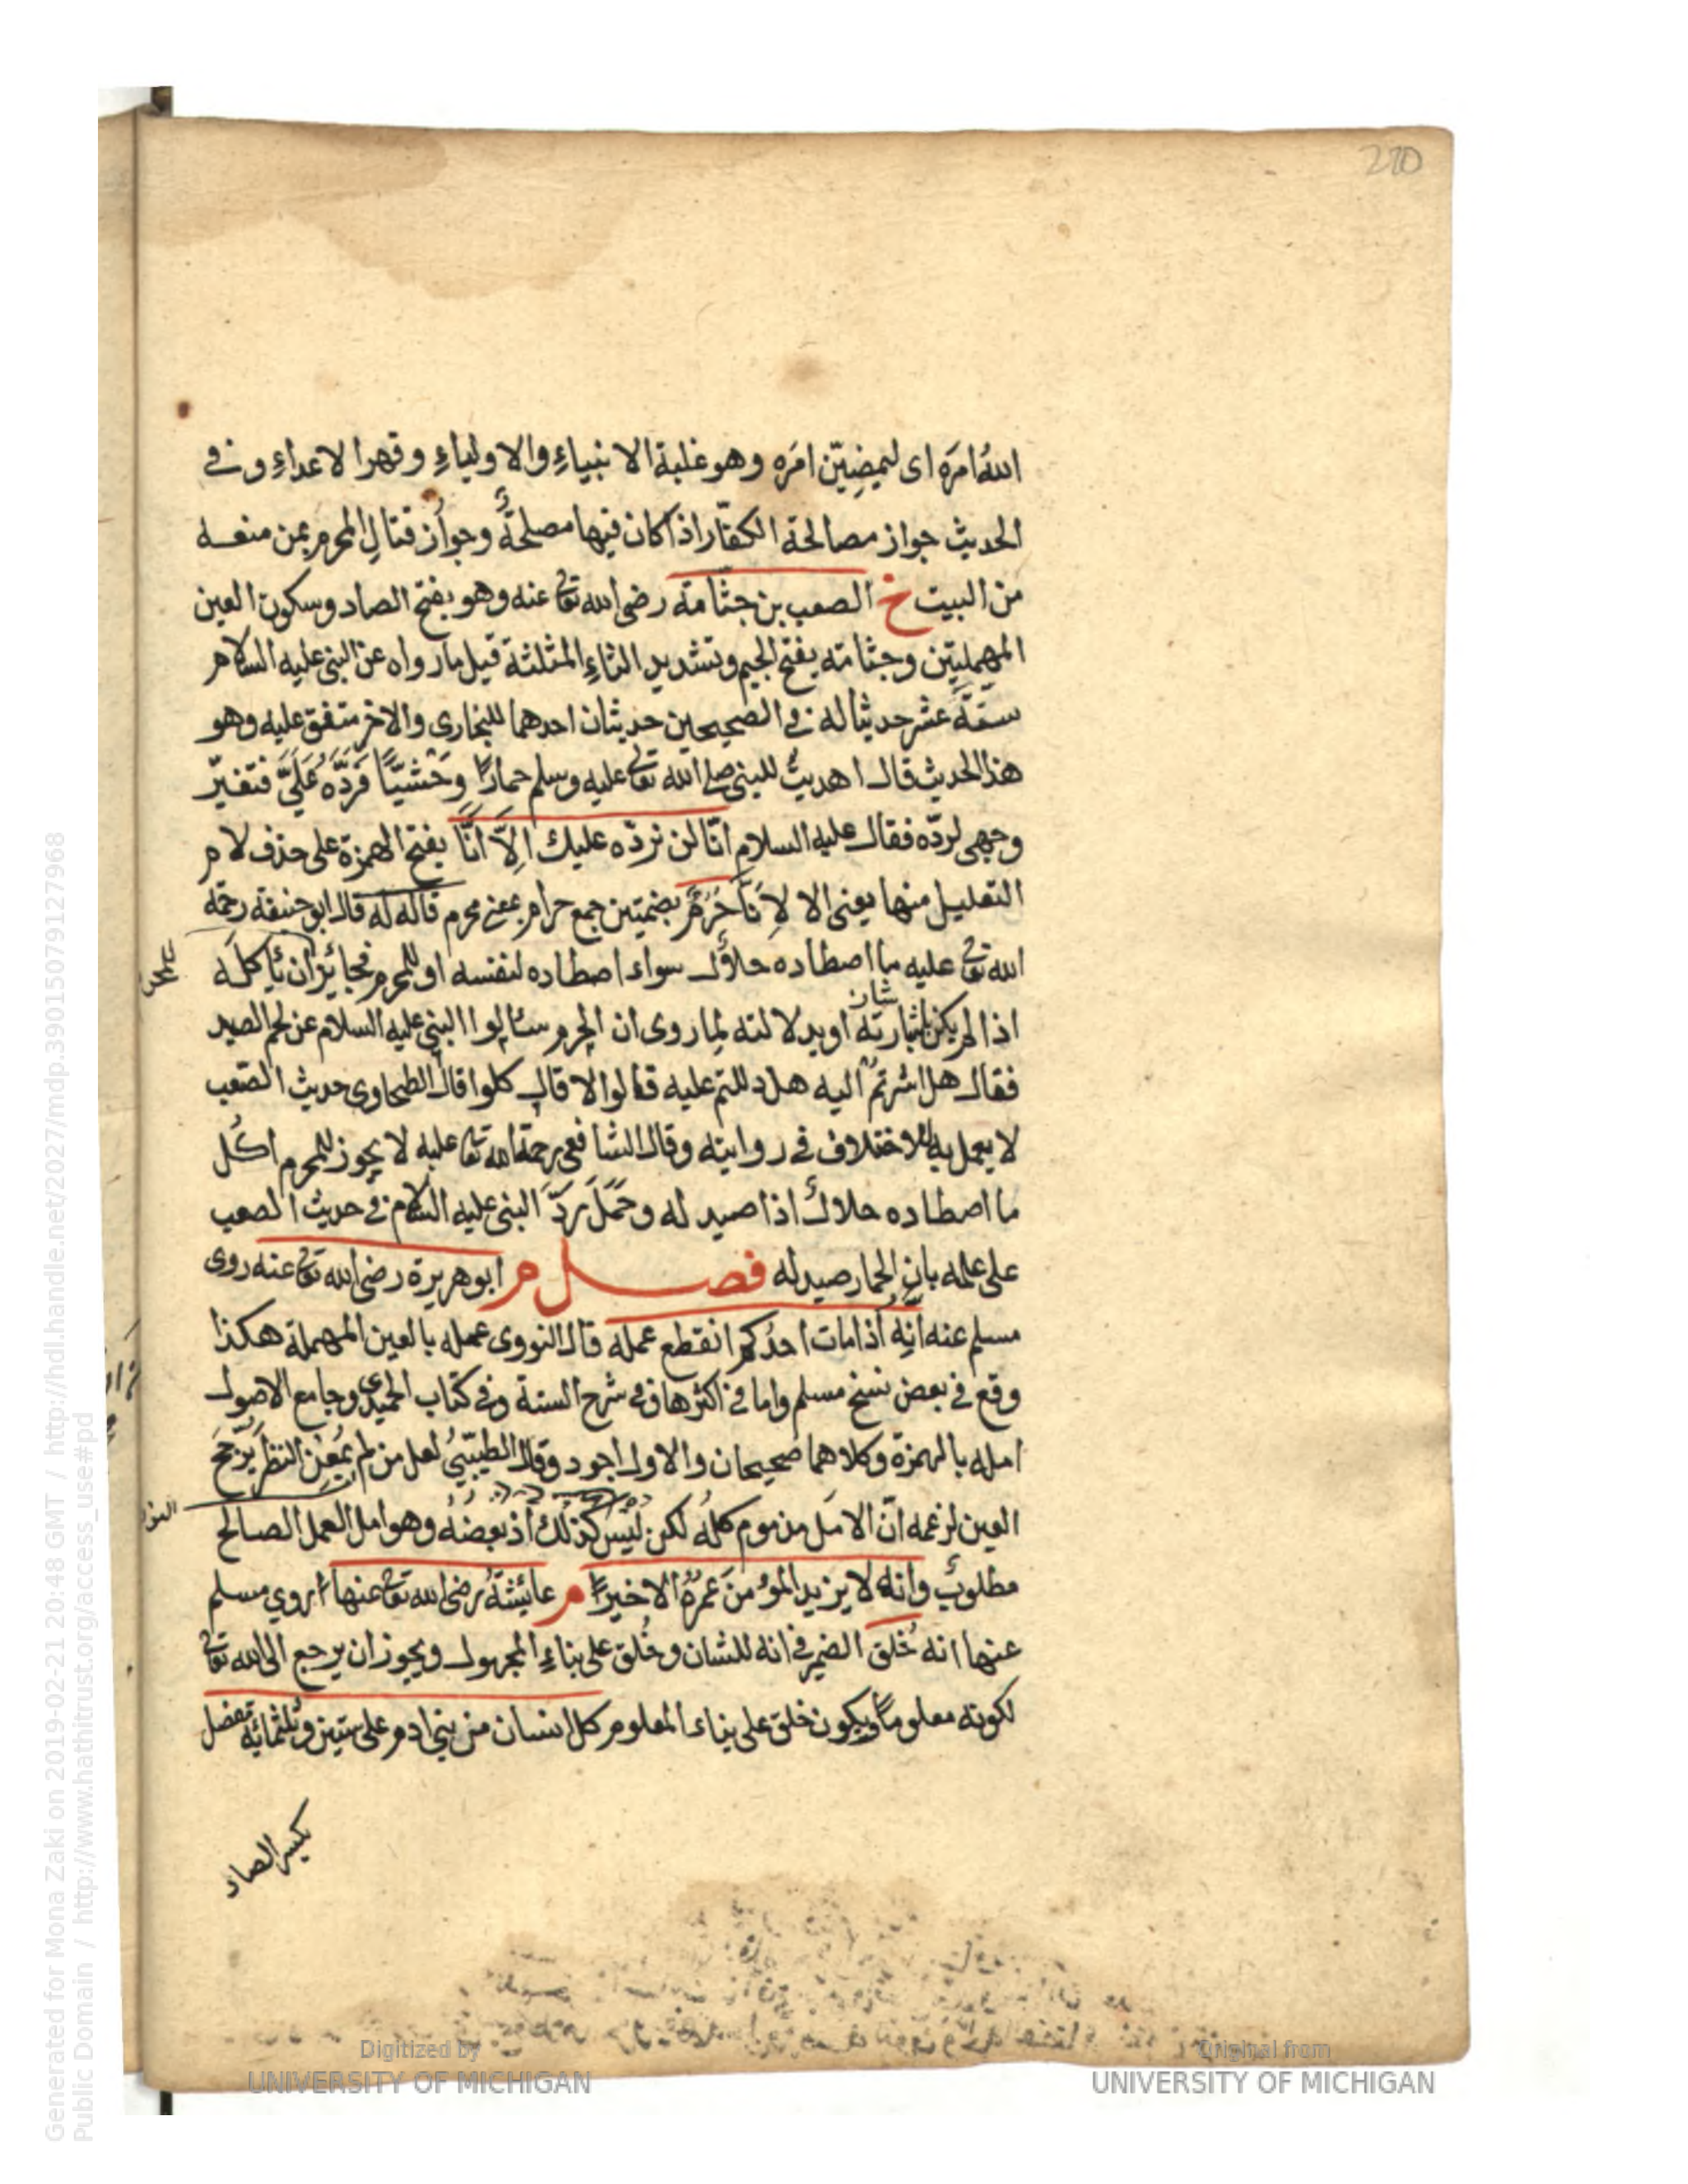 270
الله امره اى ليمضين امره وهو غلبة الانبياء والاولياء وقهر الاعداء وفى
الحديث جواز مصالحة الكفار اذا كان فيها مصلحة وجواز قتال المحرم بمن منعه
من البيت خ الصعب بن جثامته رضى الله تعا عنه وهو بفتح الصاد وسكون العين
المهملتين وجثامته بفتح الجيم وتشديد الثاء المثلثة قيل ما رواه عن النبى عليه السلام
ستة عشر حديثا له فى الصحيحين حديثان احدهما للبخارى والاخر متفق عليه وهو
هذا الحديث قال اهديت للنبى صلى الله تعا عليه وسلم حمارا وحشيا فرده على فتغير
وجهى لرده فقال عليه السلام انا لن نرده عليك الا انا بفتح الهمزة على حذف لام
التعليل منها يعنى الا لانا حرم بضمتين جمع حرام بمعنى محرم قاله له قال ابو حنيفة رحمة
الله تعا عليه ما اصطاده حلال سواء اصطاده لنفسه او للمحرم فجائز ان ياكله
اذا لم يكن باشارته او بدلالته لما روى ان المحرم سالوا النبى عليه السلام عن لحم الصيد
فقال هل اشرتم اليه هل دللتم عليه قالوا لا قال كلوا قال الطحاوى حديث الصعب
لا يعمل به للاختلاف فى روايته وقال الشافعى رحمة الله تعا عليه لا يجوز للمحرم اكل
ما اصطاده حلال اذا صيد له وحمل رد النبى عليه السلام فى حديث الصعب
على علمه بان الحمار صيد له فصل م ابو هريرة رضى الله تعا عنه روى
مسلم عنه انه اذا مات احدكم انقطع عمله قال النووى عمله بالعين المهملة هكذا
وقع فى بعض نسخ مسلم واما فى اكثرها وفى شرح السنة وفى كتاب الحميدى وجامع الاصول
امله بالهمزة وكلاهما صحيحان والاول اجود وقال الطيبي لعل من لم يمعن النظر يرجح
العين لزعمه ان الامل مذموم كله لكن ليس كذلك اذ بعضه وهو امل العمل الصالح
مطلوب وانه لا يزيد المؤمن عمره الا خيرا م عائشة رضى الله تعا عنها روي مسلم
عنها انه خلق الضمير فى انه للشان وخلق على بناء المجهول ويجوز ان يرجع الى الله تعا
لكونه معلوما ويكون خلق على بناء المعلوم كل انسان من بنى ادم على ستين وثلثمائة مفصل
بكسر الصاد
Digitized by
UNIVERSITY OF MICHIGAN
Original from
UNIVERSITY OF MICHIGAN
Generated for Mona Zaki on 2019-02-21 20:48 GMT / http://hdl.handle.net/2027/mdp.39015079127968
Public Domain / http://www.hathitrust.org/access_use#pd